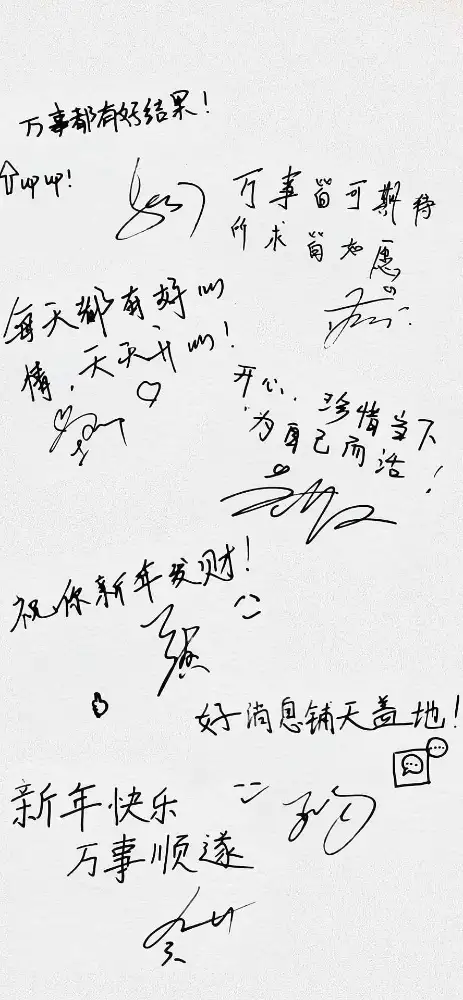 万事都有好结果!
↑up up!
万事皆可期待
所求皆如愿
每天都有好心
情,天天开心!
开心、珍惜当下
为自己而活!
祝你新年发财!
好消息铺天盖地!
新年快乐
万事顺遂